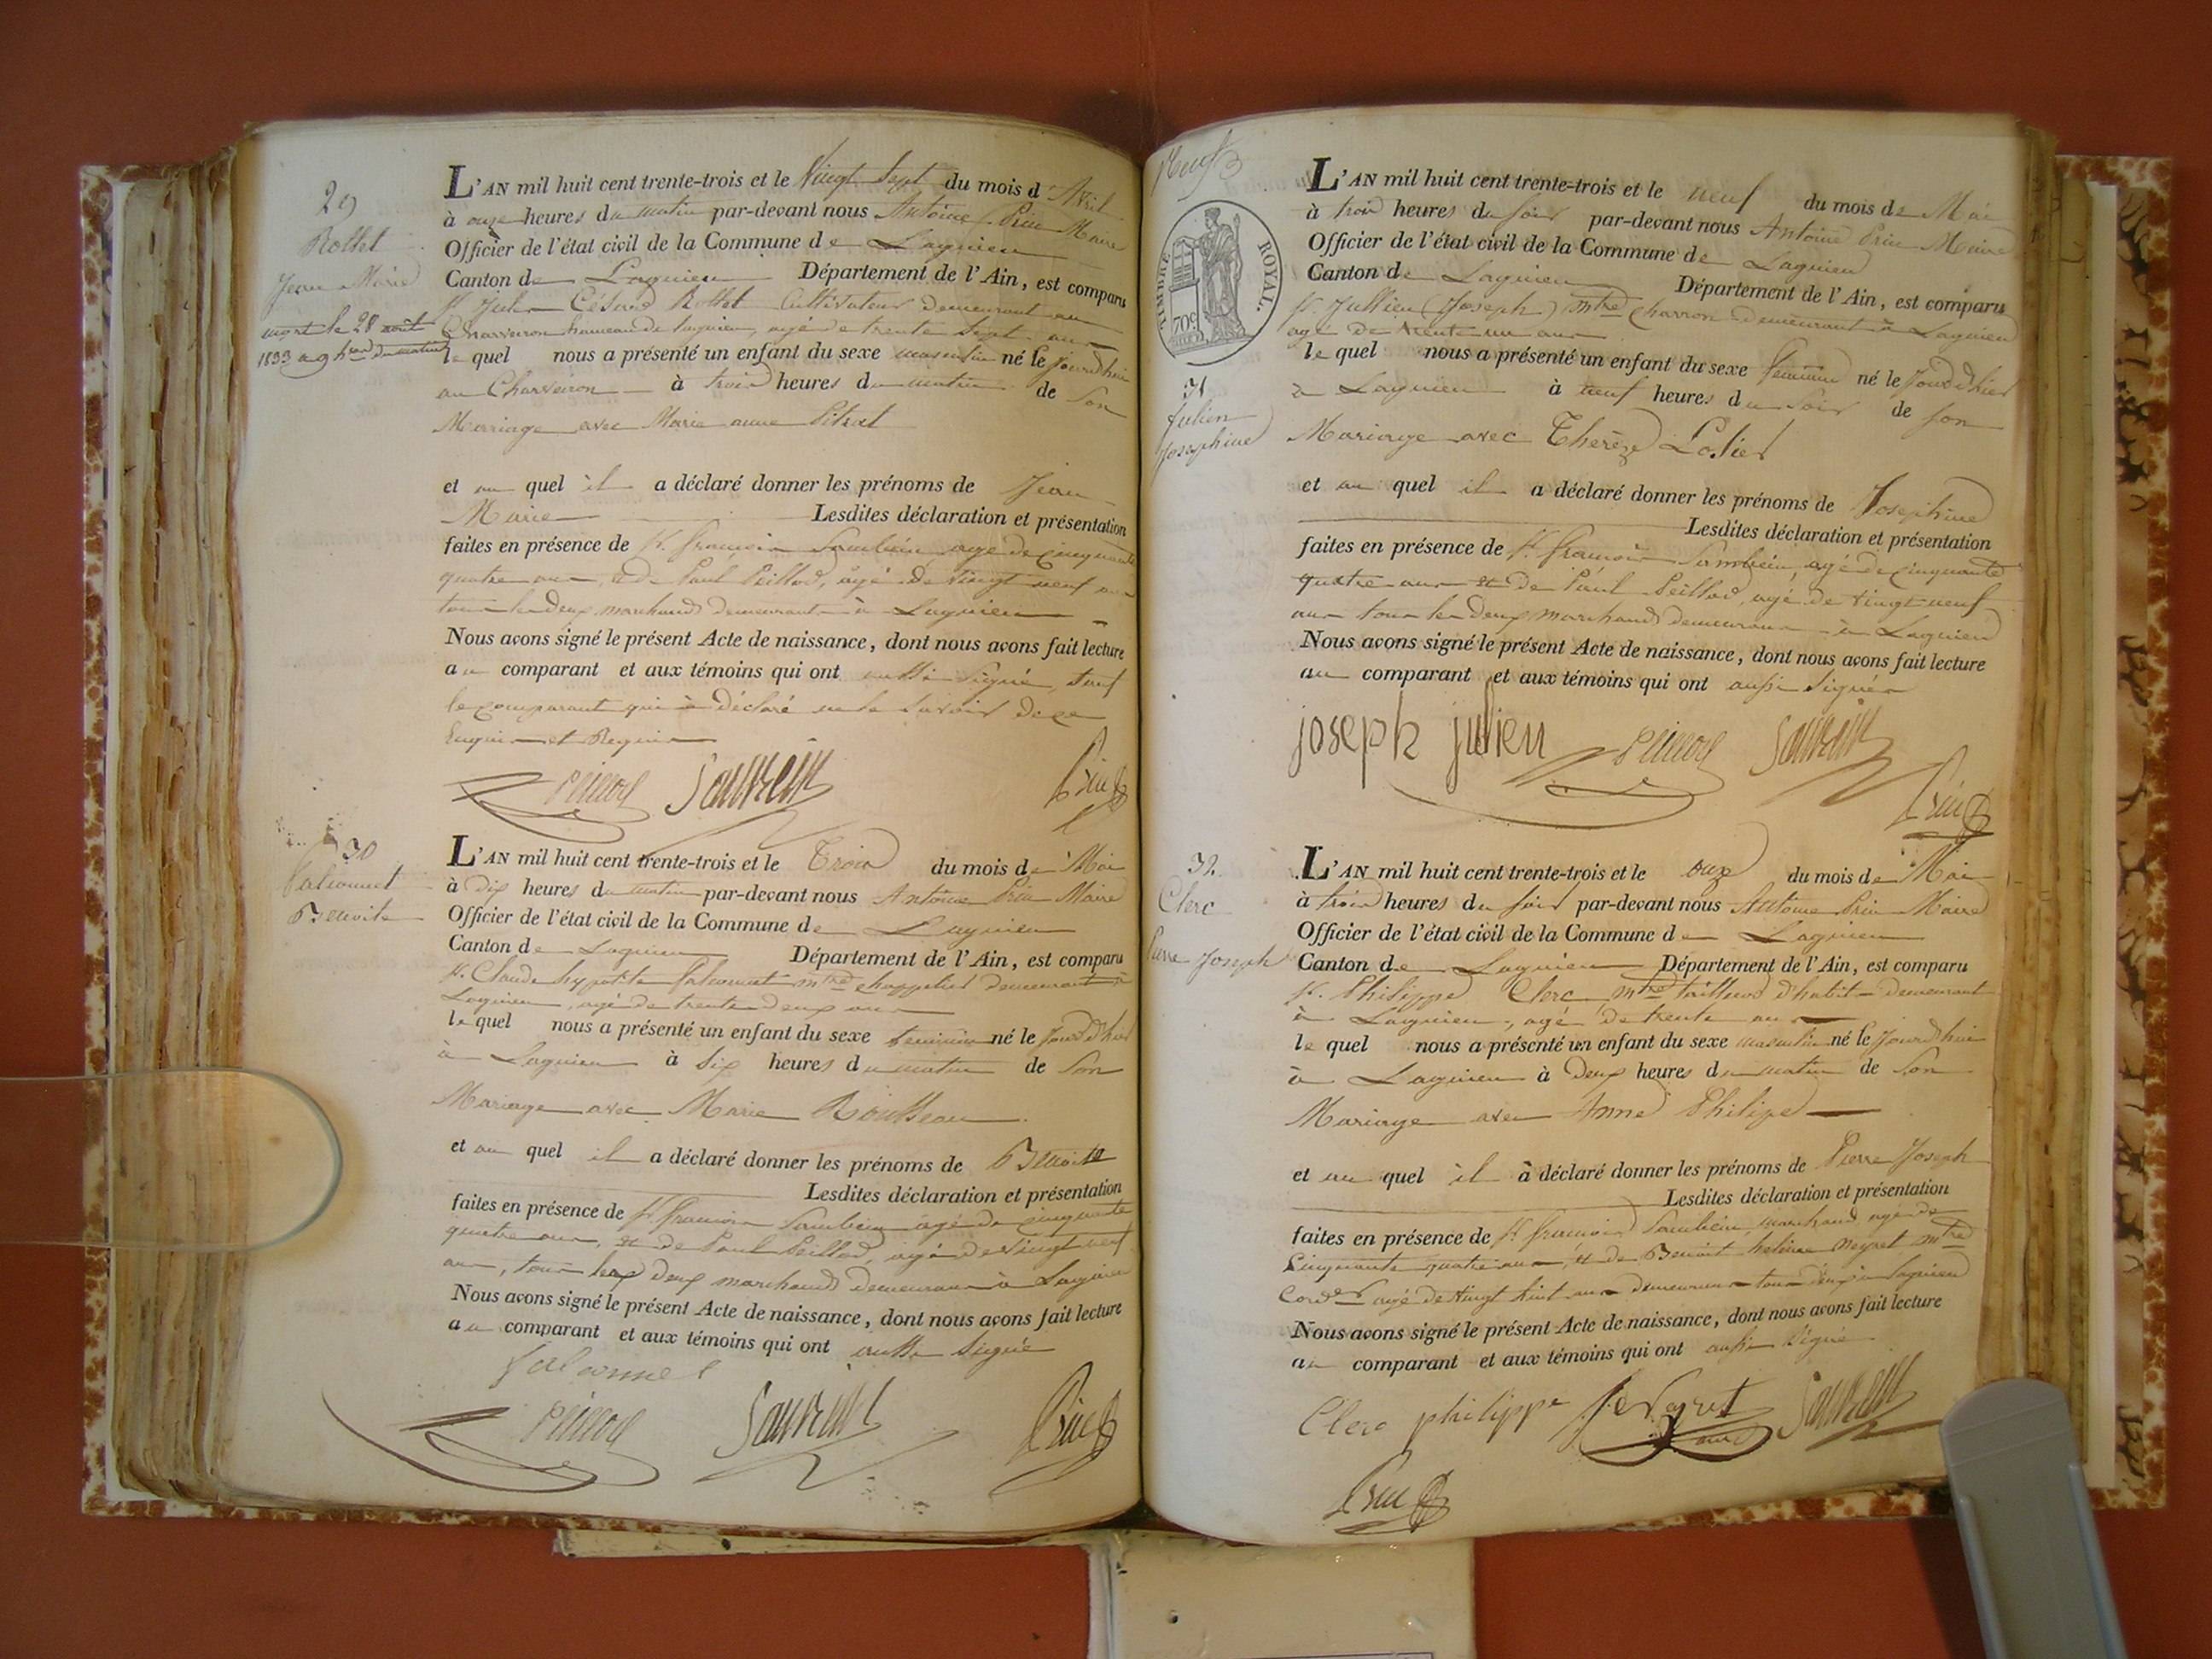 29
Rollet
Jean Marie
mort le 28 août
1833 a 9 h du matin
L'AN mil huit cent trente-trois et le Vingt Sept du mois d'Avril
à onze heures du matin par-devant nous Antoine Prin Maire
Officier de l'état civil de la Commune de Lagnieu
Canton de Lagnieu Département de l'Ain, est comparu
Sr. Jules César Rollet Cultivateur demeurant au
Charveiron hameau de Lagnieu, agé de trente Sept ans
le quel nous a présenté un enfant du sexe masculin né le Jourdhui
au Charveiron à trois heures du matin de Son
Mariage avec Marie anne Pitrat
et au quel il a déclaré donner les prénoms de Jean
Marie Lesdites déclaration et présentation
faites en présence de Sr. françois agé de cinquante
quatre ans, & de Paul Peillod, agé de Vingt neuf ans
tous les deux marchands demeurant à Lagnieu
Nous avons signé le présent Acte de naissance, dont nous avons fait lecture
au comparant et aux témoins qui ont aussi Signé, Sauf
le comparant qui à déclaré ne le Savoir de ce
Enquis et Requis
30
Falconnet
Benoite
L'AN mil huit cent trente-trois et le Trois du mois de Mai
à dix heures du matin par-devant nous Antoine Prin Maire
Officier de l'état civil de la Commune de Lagnieu
Canton de Lagnieu Département de l'Ain, est comparu
Sr. Claude hypolite falconnet mtre chappelier demeurant à
Lagnieu, agé de trente deux ans
le quel nous a présenté un enfant du sexe feminin né le Jourd'hui
à Lagnieu à Six heures du matin de Son
Mariage avec Marie Rousseau
et au quel il a déclaré donner les prénoms de Benoite
Lesdites déclaration et présentation
faites en présence de Sr. françois agé de cinquante
quatre ans, & de Paul Peillod, agé de Vingt neuf
ans, tous les deux marchands demeurans à Lagnieu
Nous avons signé le présent Acte de naissance, dont nous avons fait lecture
au comparant et aux témoins qui ont aussi Signé
falconnet
Neuf
TIMBRE ROYAL.
70c
31
Julien
Josephine
L'AN mil huit cent trente-trois et le neuf du mois de Mai
à trois heures du soir par-devant nous Antoine Prin Maire
Officier de l'état civil de la Commune de Lagnieu
Canton de Lagnieu Département de l'Ain, est comparu
Sr. Jullien (Joseph) mtre Charron demeurant à Lagnieu
agé de trente un ans
le quel nous a présenté un enfant du sexe feminin né le Jourd'hier
à Lagnieu à neuf heures du Soir de son
Mariage avec Thereze
et au quel il a déclaré donner les prénoms de Josephine
Lesdites déclaration et présentation
faites en présence de Sr. françois agé de cinquante
quatre ans & de Paul Peillod, agé de vingt neuf
ans tous les deux marchands demeurans à Lagnieu
Nous avons signé le présent Acte de naissance, dont nous avons fait lecture
au comparant et aux témoins qui ont aussi Signés
joseph julien
32.
Clerc
Pierre Joseph
L'AN mil huit cent trente-trois et le onze du mois de Mai
à trois heures du soir par-devant nous Antoine Prin Maire
Officier de l'état civil de la Commune de Lagnieu
Canton de Lagnieu Département de l'Ain, est comparu
Sr. Philippe Clerc mtre tailleur d'habit demeurant
à Lagnieu, agé de trente ans
le quel nous a présenté un enfant du sexe masculin né le Jourdhui
à Lagnieu à Deux heures du matin de Son
Mariage avec Anne Philipe
et au quel il à déclaré donner les prénoms de Pierre Joseph
Lesdites déclaration et présentation
faites en présence de Sr. françois marchand, agé de
Cinquante quatre ans, & de Benoit Neyret mtre
Cordr agé de Vingt huit ans demeurans tous deux à Lagnieu
Nous avons signé le présent Acte de naissance, dont nous avons fait lecture
au comparant et aux témoins qui ont aussi Signé
Clerc philippe